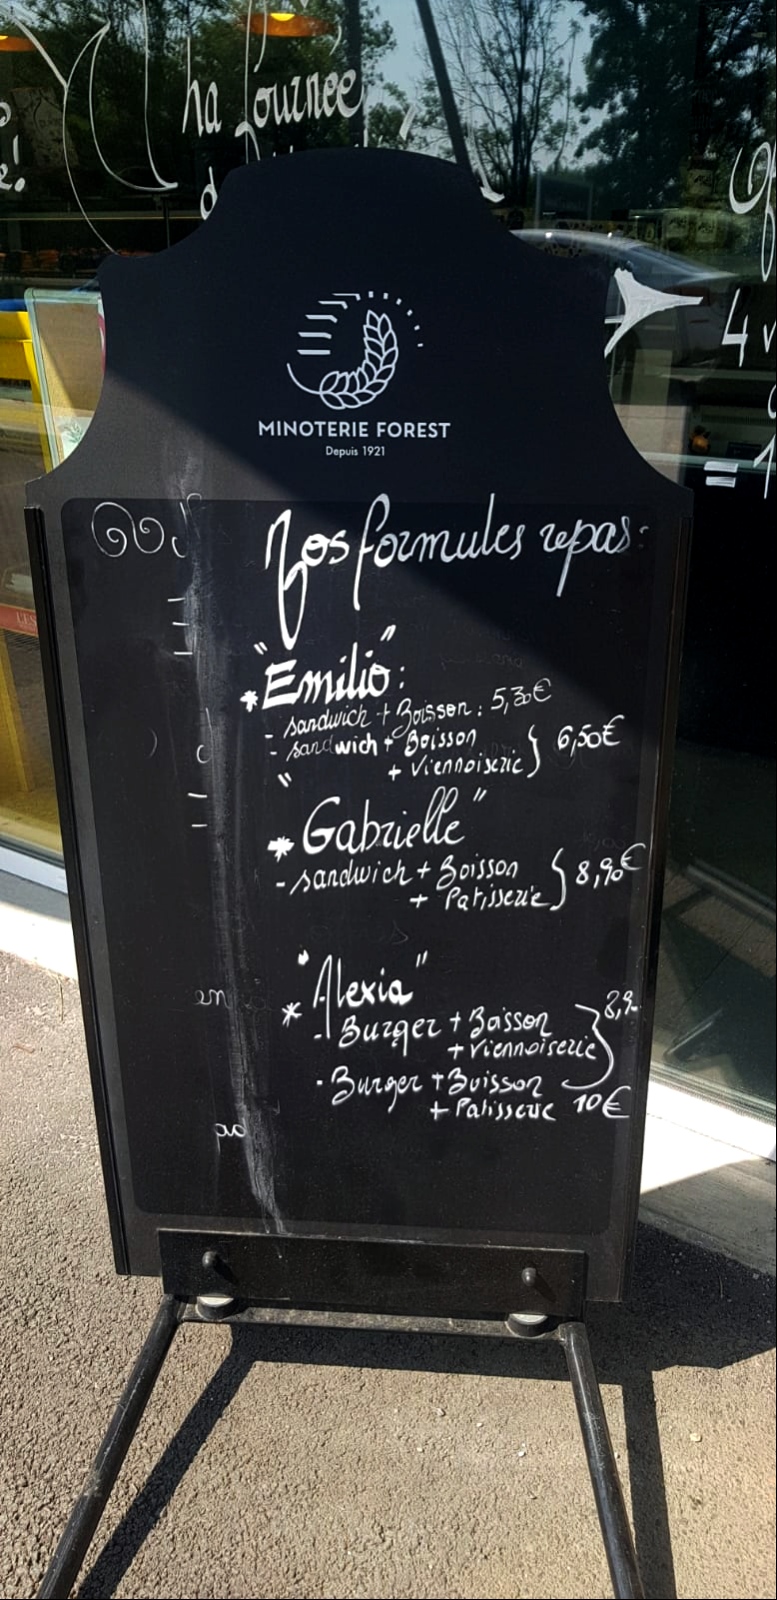 ha Journée
MINOTERIE FOREST
Depuis 1921
Nos formules repas:
* "Emilio":
- sandwich + Boisson: 5,30€
- sandwich + Boisson
+ Viennoiserie } 6,50€
* "Gabrielle"
- sandwich + Boisson
+ Patisserie } 8,90€
* "Alexia"
- Burger + Boisson
+ Viennoiserie
- Burger + Boisson
+ Patisserie 10€